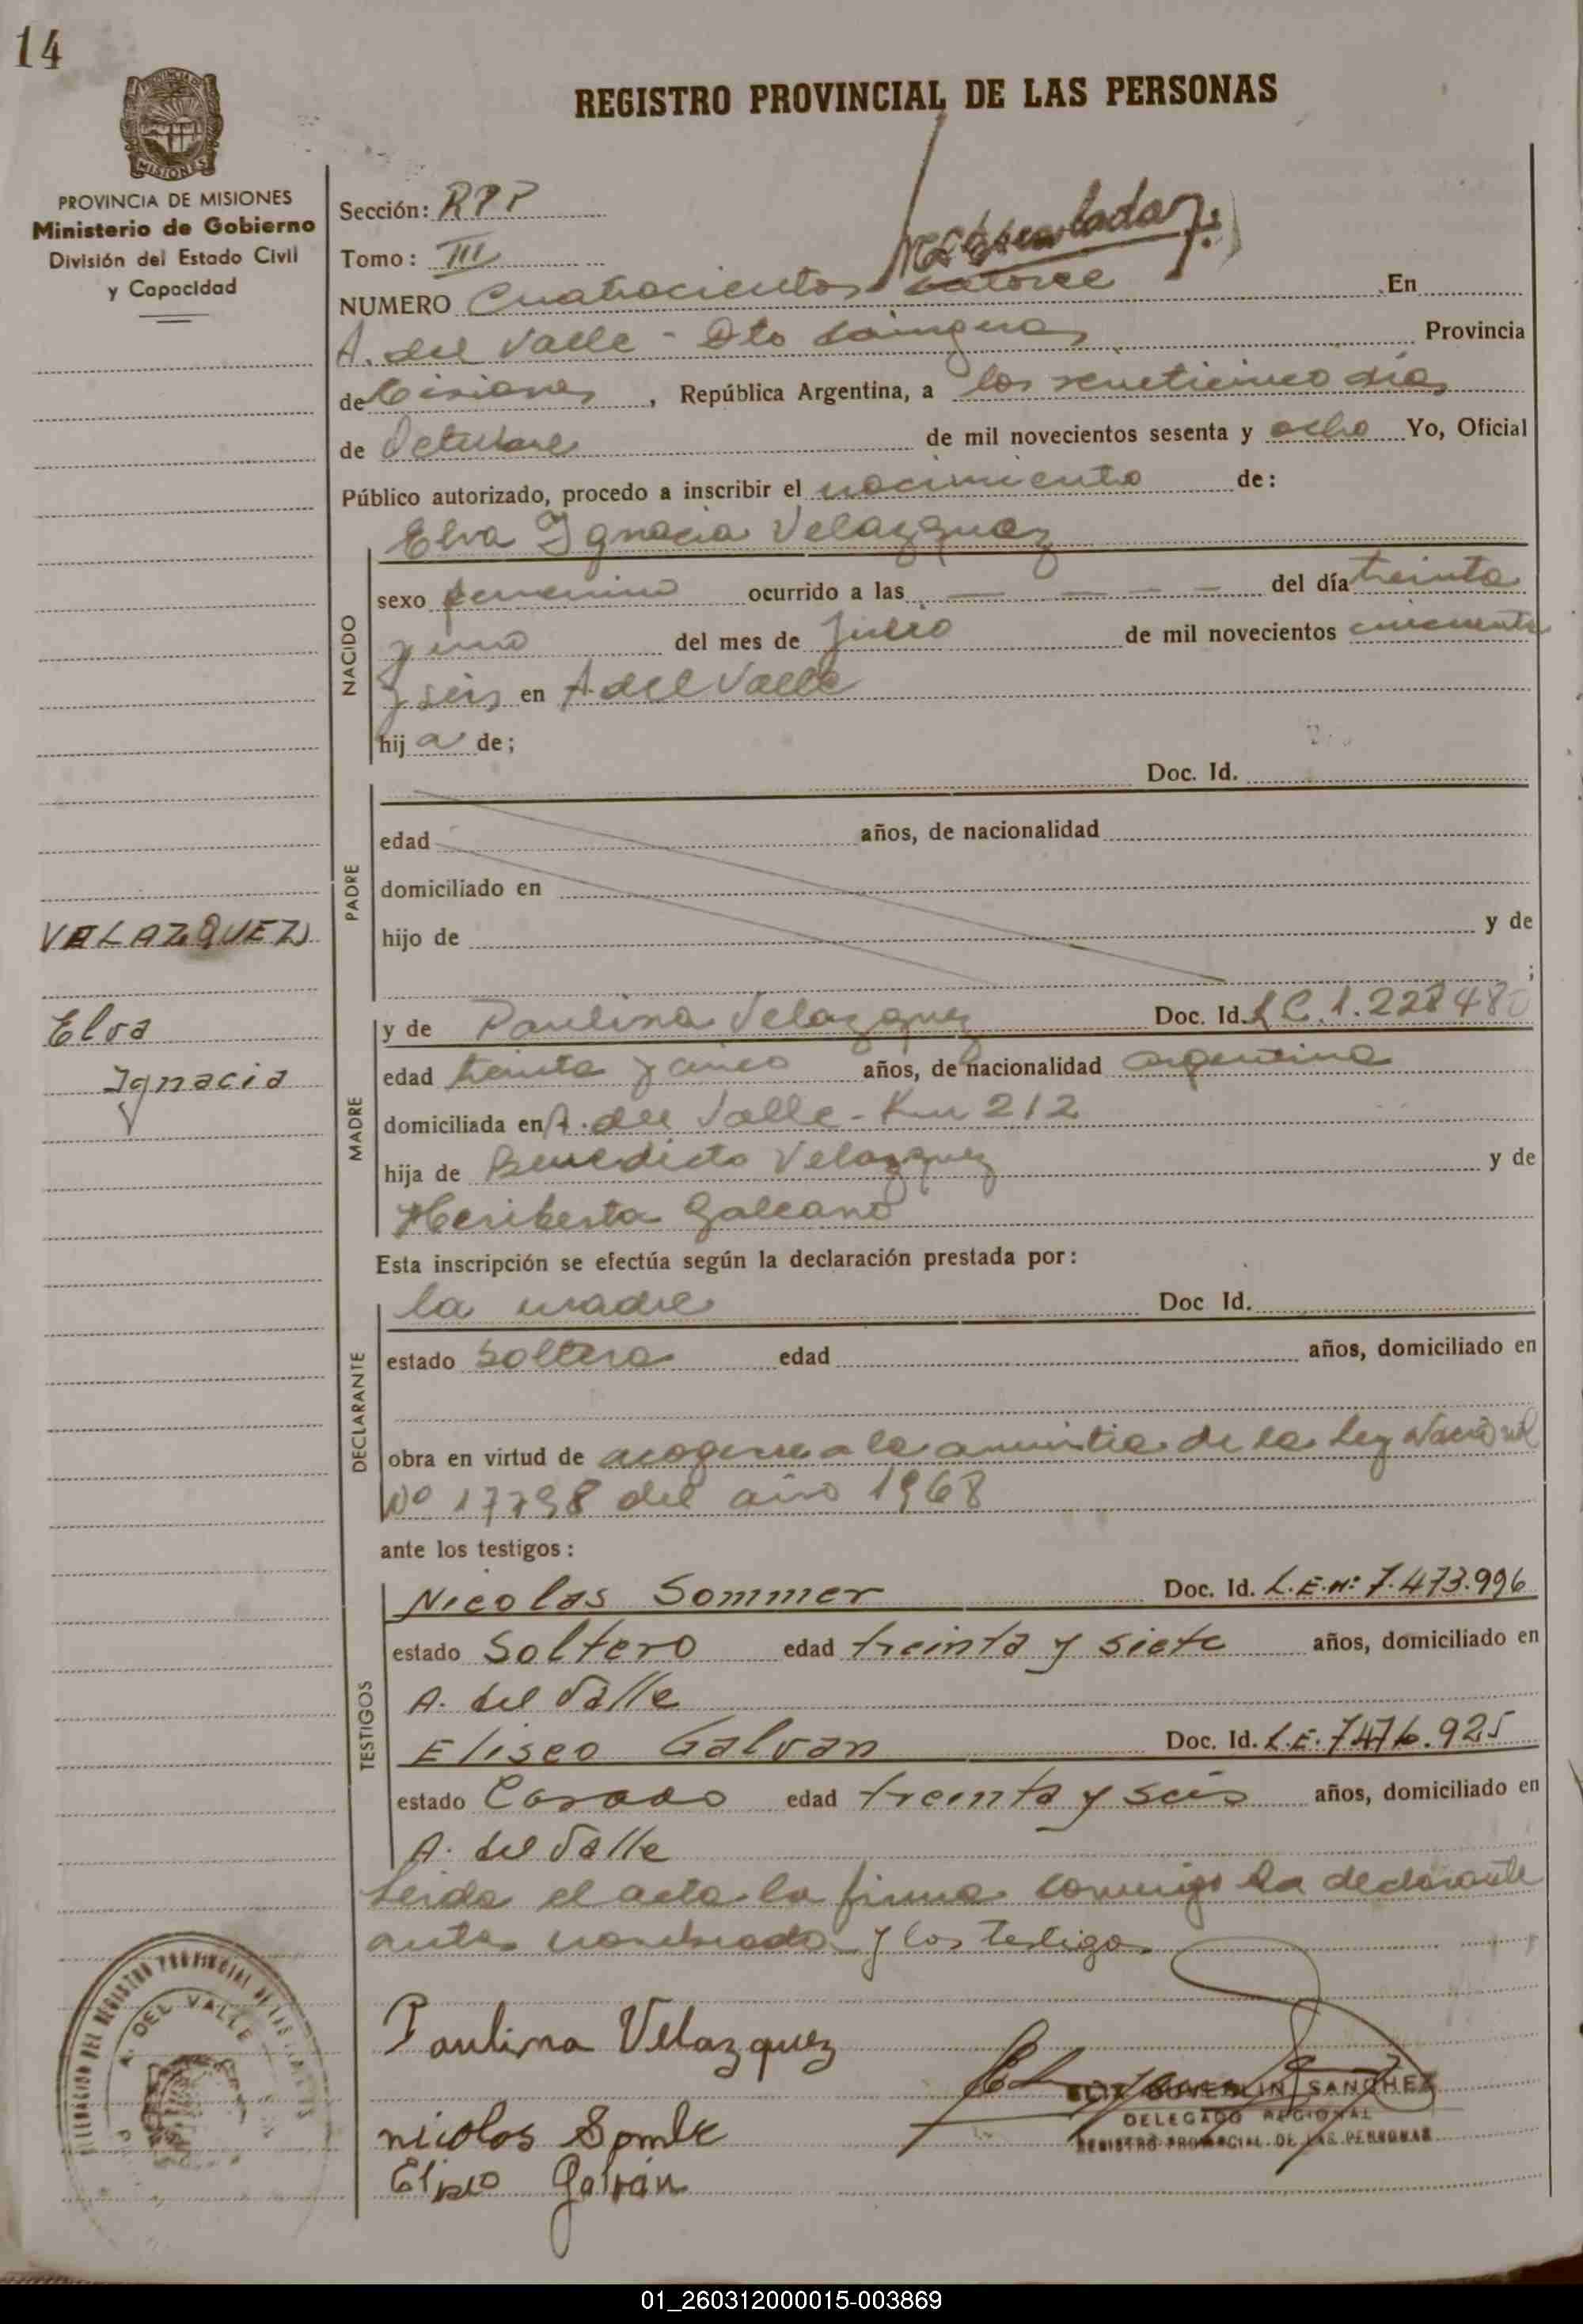 14
PROVINCIA DE MISIONES
MISIONES
PROVINCIA DE MISIONES
Ministerio de Gobierno
División del Estado Civil
y Capacidad
REGISTRO PROVINCIAL DE LAS PERSONAS
Sección: RPP
Tomo: III
NUMERO Cuatrocientos catorce En
A. del Valle - Dto Cainguas Provincia
de Misiones, República Argentina, a los veinticinco días
de Octubre de mil novecientos sesenta y ocho Yo, Oficial
Público autorizado, procedo a inscribir el nacimiento de:
Elva Ignacia Velazquez
NACIDO
sexo femenino ocurrido a las — — — — del día treinta
y uno del mes de Julio de mil novecientos cincuenta
y seis en A. del Valle
hij a de;
PADRE
Doc. Id.
edad años, de nacionalidad
domiciliado en
hijo de y de
;
VELAZQUEZ
Elva
Ignacia
MADRE
y de Paulina Velazquez Doc. Id. L C. 1.228480
edad treinta y cinco años, de nacionalidad argentina
domiciliada en A. del Valle - Km 212
hija de Benedicto Velazquez y de
Heriberta Galeano
Esta inscripción se efectúa según la declaración prestada por:
DECLARANTE
la madre Doc Id.
estado Soltera edad años, domiciliado en
obra en virtud de acogerse a la amnistia de la Ley Nacional
Nº 17798 del año 1968
ante los testigos:
TESTIGOS
Nicolas Sommer Doc. Id. L.E.Nº 7.473.996
estado Soltero edad treinta y siete años, domiciliado en
A. del Valle
Eliseo Galvan Doc. Id. L.E. 7.476.925
estado Casado edad treinta y seis años, domiciliado en
A. del Valle
Leida el acta la firma conmigo la declarante
antes nombrada y los testigos
Paulina Velazquez
nicolos
Eliseo Galván
SANCHEZ
DELEGADO REGIONAL
REGISTRO PROVINCIAL DE LAS PERSONAS
DELEGACION DEL REGISTRO PROVINCIAL DE LAS
A. DEL VALLE
01_260312000015-003869